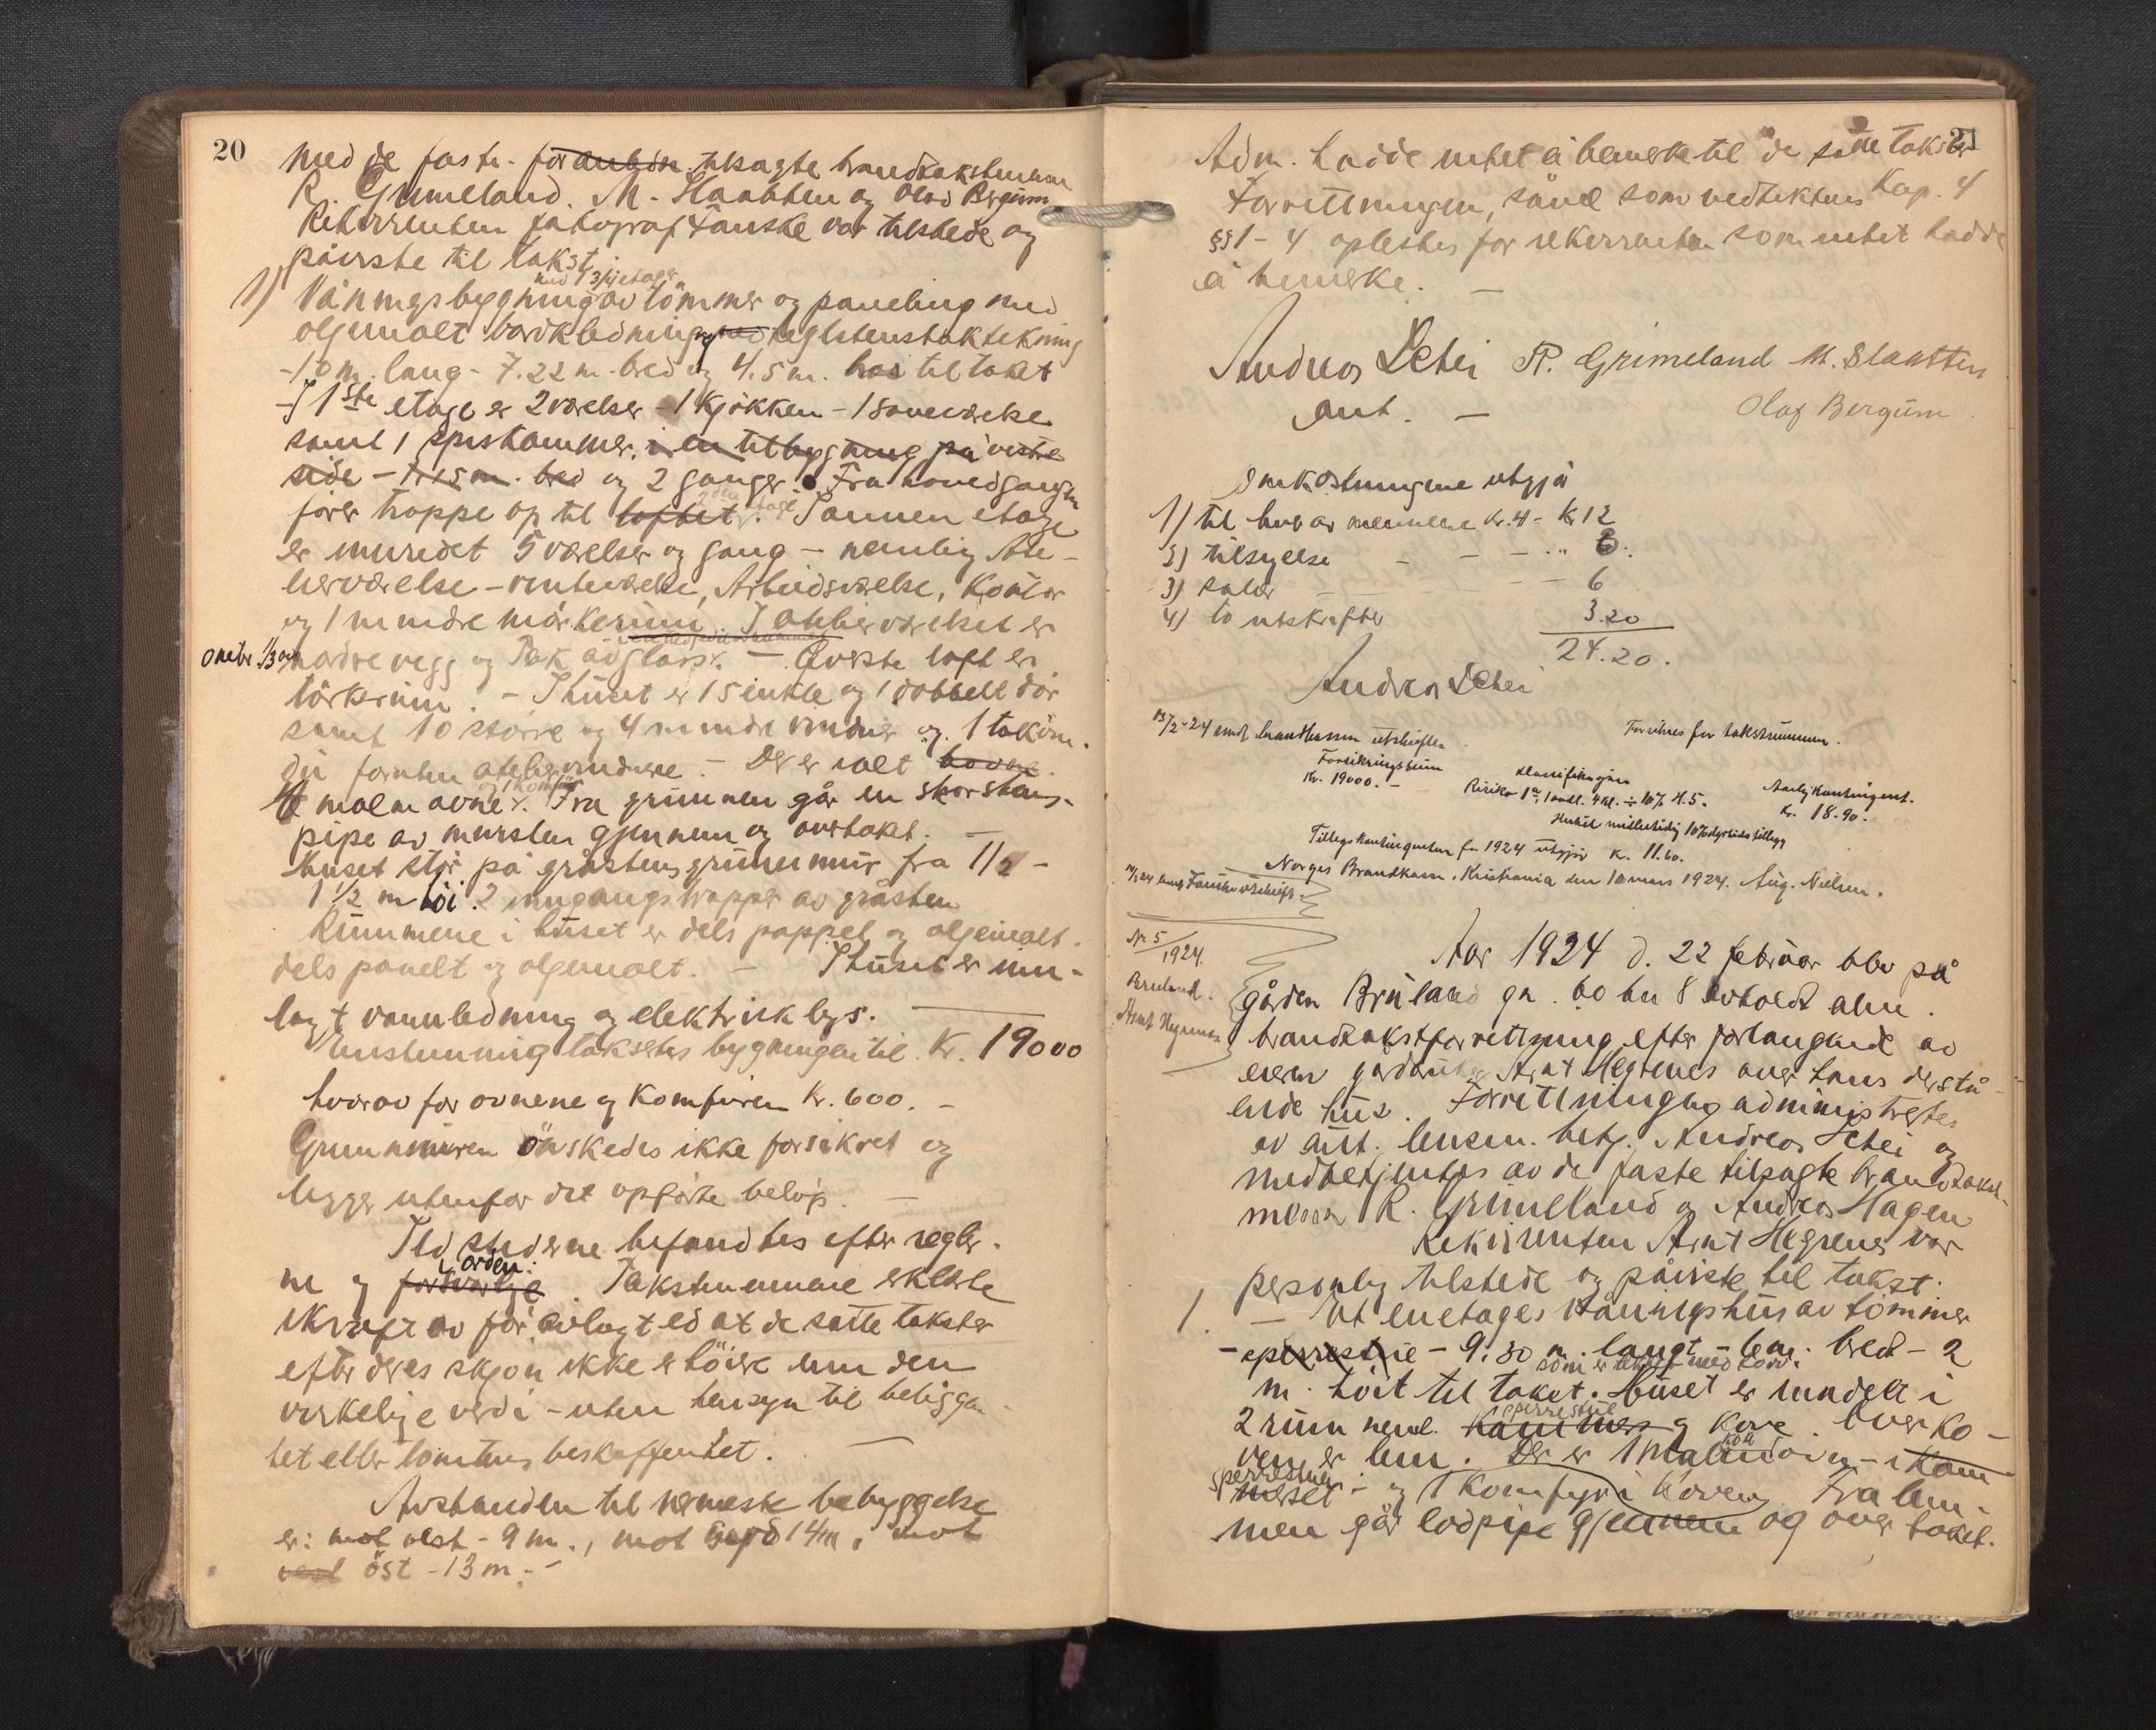 20
med de faste tilsagte brandtakstmenn
R. Grimeland. M. Slaatten og Olav Bergum
Rekvirenten fotograf Fauske var tilstede og
påviste til takst.
med 3/4 etage
1) Våningsbygning av tömmer og paneling med
oljemalt bordkledning og teglstenstaktekning
- 10 m. lang - 7.22 m. bred og 4.5 m. höi til taket
- I 1ste etage er 2 værelser - 1 kjökken - 1 soveværelse
samt 1 spiskammer. i en tilbygning på vestre
side - bred og 2 ganger. Fra hovedgangen
förer trappe op til loftet 2den etage. I annen etage
er innredet 5 værelser og gang - nemlig Ate-
lierværelse - venteværelse, Arbeidsværelse, Kontor
og 1 mindre mörkerum. I atelierværelset er
nordre vegg og Tak av glass. - Överste loft er
törkerum. - I huset er 15 enkle og 1 dobbelt dör
samt 10 större og 4 mindre vinduer og 1 takvin-
du foruten ateliervinduene. - Der er ialt
og 1 komfyr
4 malm ovner. Fra grunnen går en skorstens-
pipe av mursten gjennem og over taket. -
Huset står på gråstens grunnmur fra 1/2 -
1 1/2 m höi. 2 inngangstrapper av gråsten
Rummene i huset er dels pappet og oljemalt.
dels panelt og oljemalt. - I huset er inn-
lagt vannledning og elektrisk lys.
Enstemmig taksertes bygningen til Kr. 19000
hvorav for ovnene og Komfyren Kr. 600. -
Grunnmuren önskedes ikke forsikret og
ligger utenfor det opförte belöp. -
Ildstederne befandtes efter regler-
i orden:
ne og forsvarlige. Takstmennene erklærte
i kraft av för avlagt ed at de satte takster
efter deres skjön ikke er höiere enn den
virkelige verdi - uten hensyn til beliggen-
het eller tomtens beskaffenhet. -
Avstanden til nærmeste bebyggelse
er: mot vest - 9 m., mot syd 14 m, mot
vest öst - 13 m. -
21
Adm. hadde intet å bemerke til de satte takster
Forrettningen, såvel som vedtektens Kap. 4
§§ 1 - 4 oplestes for rekvirenten som intet hadde
å bemerke. -
Andreas Lehei R. Grimeland M. Slaatten
aut. - Olaf Bergum
Omkostningene utgjör
1) til hver av mennene Kr. 4 - Kr 12
2) tilsyelse - - .. 3.
3) salær - - - 6
4) to utskrifter 3.20
24.20.
Andreas Lehei
Forsikres for takstsummen.
Forsikringssum
Kr. 19000. -
Klassifikasjon
Risiko 1a, 1 avdl. 4 kl. ÷ 10% H.5.
Aarlig Kontingent.
Kr. 18.90.
Tillegskontingenten for 1924 utgjör Kr. 11.60.
Norges Brandkasse, Kristiania den 10 mars 1924. Aug. Nielsen.
Nr 5
1924.
Bruland.
Arnt Hegrenes
Aar 1924 d. 22 februar blev på
gården Bruland gn. 60 bn 8 avholdt alm.
brandtakstforrettning efter forlangende av
eieren gårdbruker Arnt Hegrenes over hans derstå-
ende hus. Forrettningen administrertes
av aut. lensm. betj. Andreas Lehei og
medbetjentes av de faste tilsagte brandtakst-
menn R. Grimeland og Andreas Hagen
Rekvirenten Arnt Hegrenes var
personlig tilstede og påviste til takst.
1. - Et enetages våningshus av tömmer
- 9.30 m. langt - 6 m. bred - 2
som er tekket med
m. höit til taket. Huset er inndelt i
sperrestue
2 rum neml. Kammer og Kove. Over Ko-
ven er lem. Der er 1 malm ovn - i Kam
sperrestuen
merset - og 1 komfyr i Koven. Fra lem-
men går lodpipe gjennem og over taket.